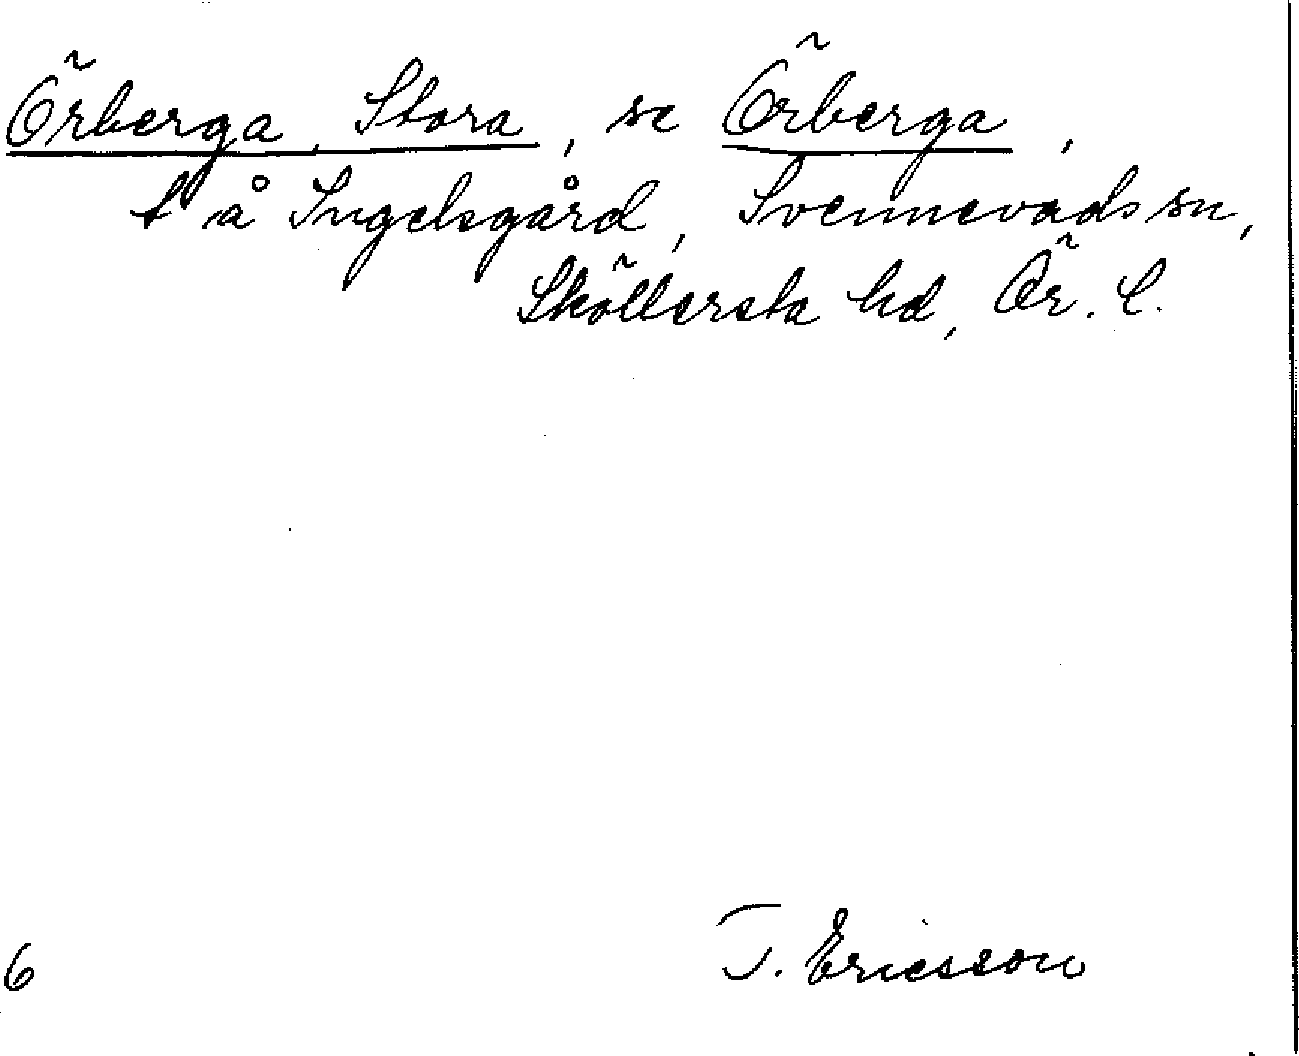 Örberga, Stora, se Örberga,
t å Ingelsgård, Svennevads sn,
Sköllersta hd, Ör. l.
T. Ericsson
6